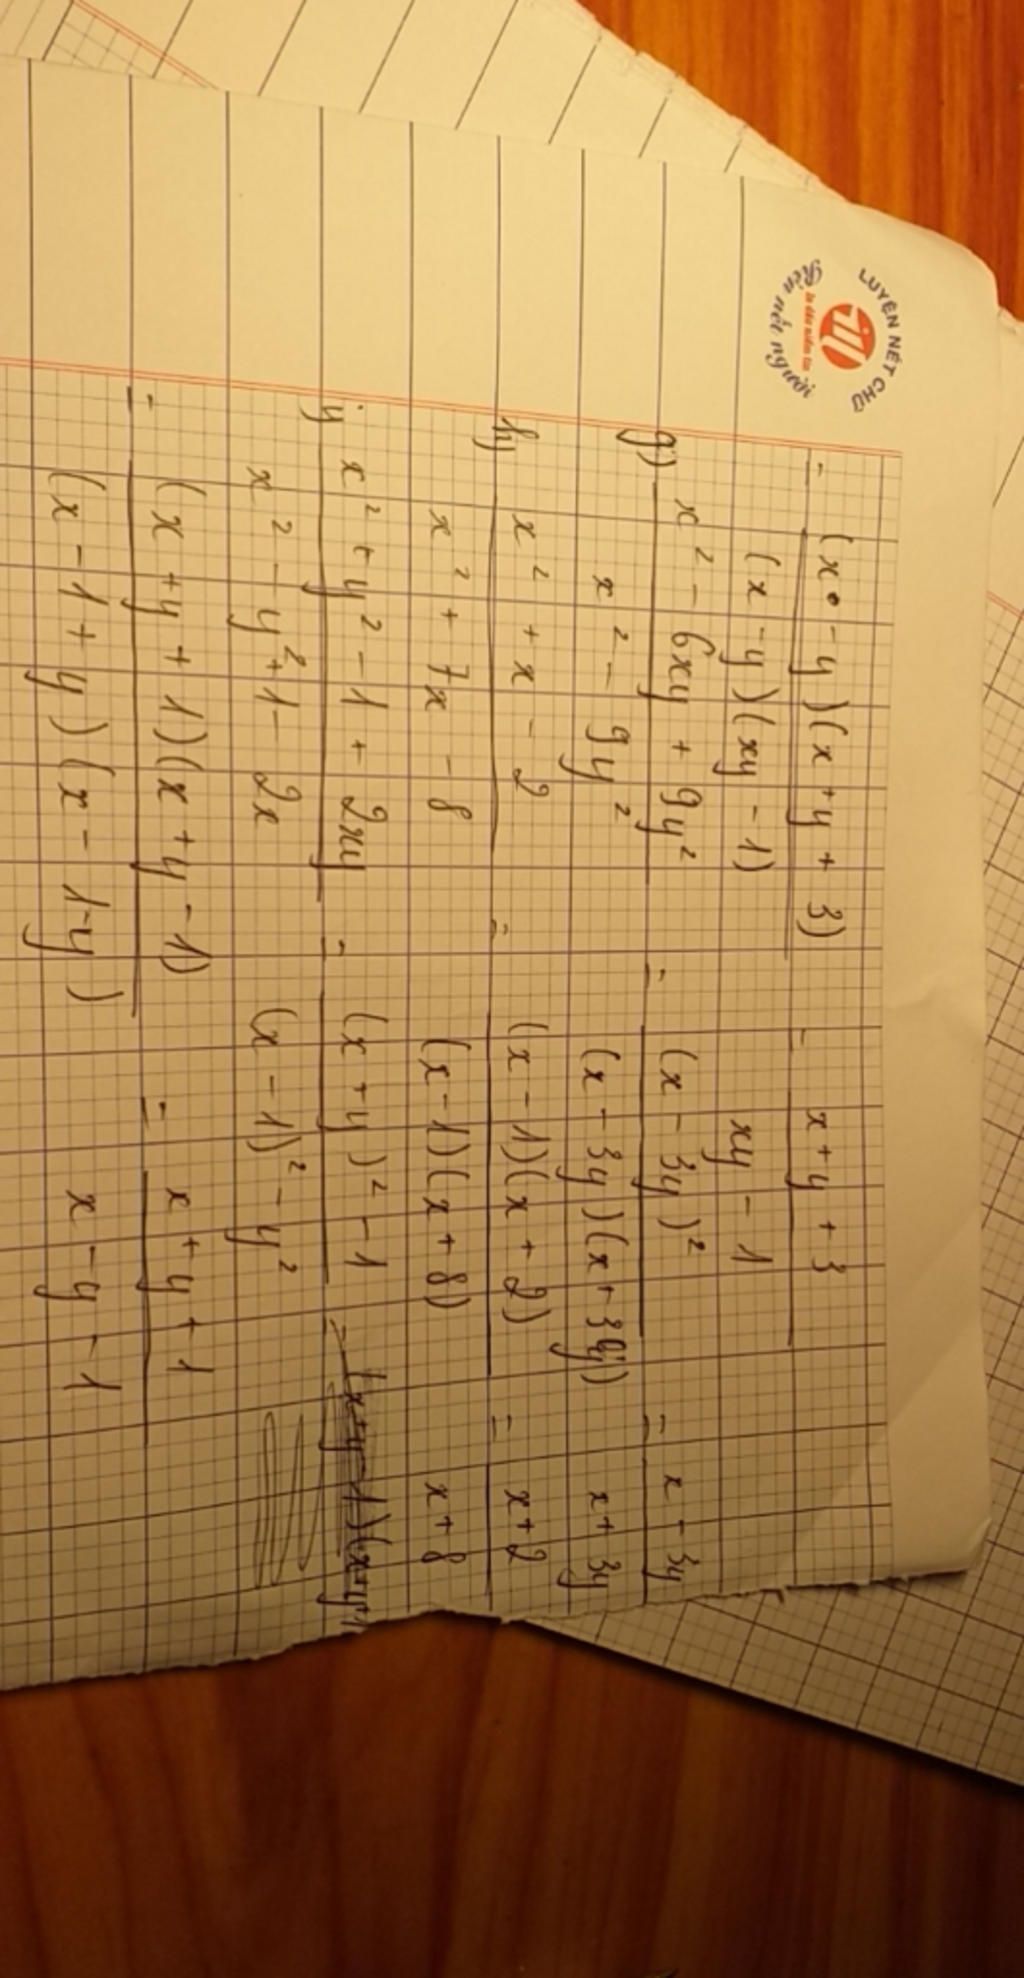 LUYỆN NÉT CHỮ
Rèn nết người
= (x - y)(x + y + 3) = x + y + 3
(x - y)(xy - 1) xy - 1
g) x² - 6xy + 9y² = (x - 3y)² = x - 3y
x² - 9y² (x - 3y)(x + 3y) x + 3y
h) x² + x - 2 = (x - 1)(x + 2) = x + 2
x² + 7x - 8 (x - 1)(x + 8) x + 8
i) x² + y² - 1 + 2xy = (x + y)² - 1
x² - y² + 1 - 2x (x - 1)² - y²
= (x + y + 1)(x + y - 1) = x + y + 1
(x - 1 + y)(x - 1 - y) x - y - 1